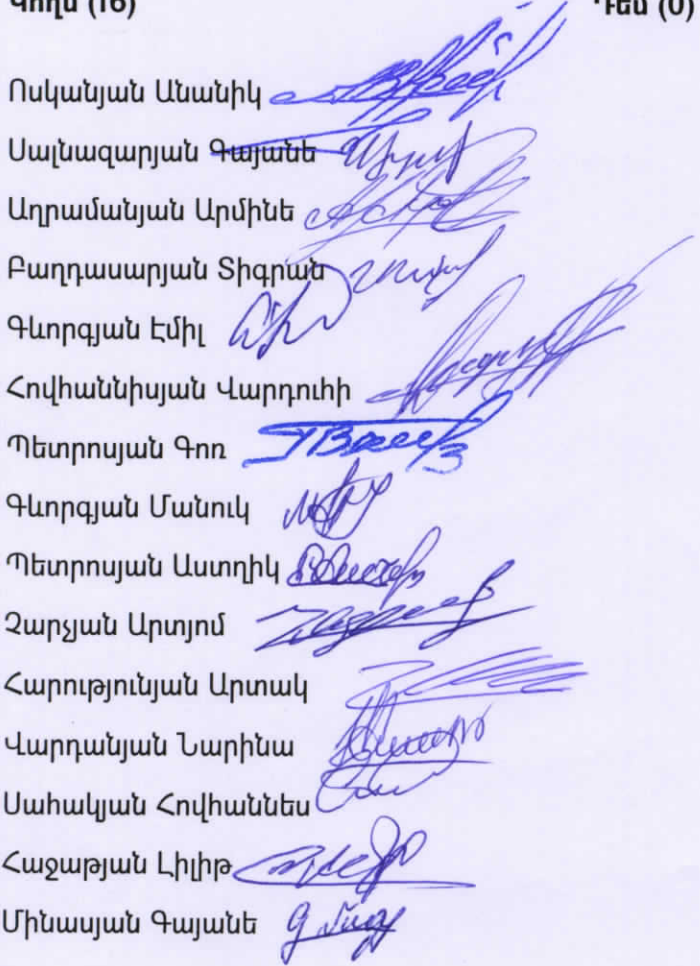 Կողմ (16) Դեմ (0)
Ոսկանյան Անանիկ
Սալնազարյան Գայանե
Աղրամանյան Արմինե
Բաղդասարյան Տիգրան
Գևորգյան Էմիլ
Հովհաննիսյան Վարդուհի
Պետրոսյան Գոռ
Գևորգյան Մանուկ
Պետրոսյան Աստղիկ
Չարչյան Արտյոմ
Հարությունյան Արտակ
Վարդանյան Նարինա
Սահակյան Հովհաննես
Հաջաթյան Լիլիթ
Մինասյան Գայանե